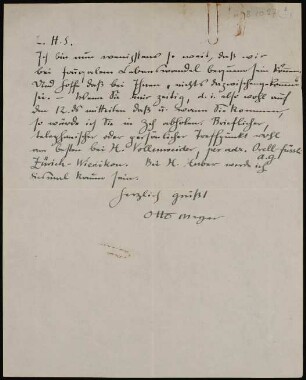 L. H. S.
Ich bin nun wenigstens so weit, daß wir
bei frugalem Lebenswandel bequem sein können.
Und hoffe daß bei Ihnen nichts dazwischengekommen
sie. Wenn Sie mir zeitig, d. i. also wohl auf
den 12. ds mitteilen daß u. wann Sie kommen,
so würde ich Sie in Zch abholen. Brieflicher,
telephonischer oder persönlicher Treffpunkt wohl
am besten bei H. Vollenweider, per adr. Orell-Füssli
A.G.
Zürich-Wiedikon. Bei H. Huber werde ich
diesmal kaum sein.
Herzlich grüßt
Otto Meyer